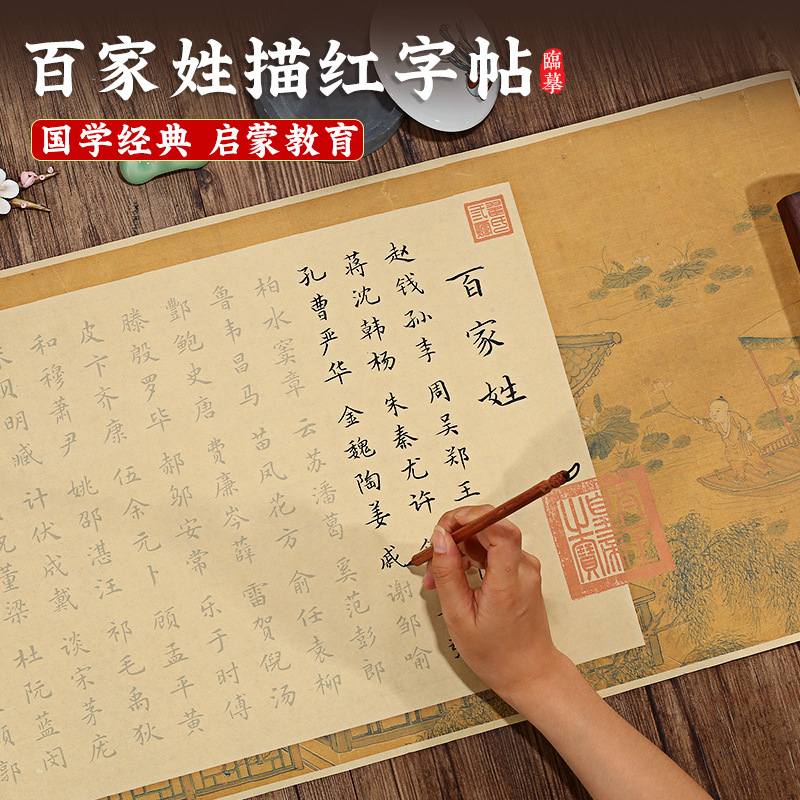 百家姓描红字帖
臨摹
国学经典 启蒙教育
百家姓
赵钱孙李 周吴郑王
蒋沈韩杨 朱秦尤许
孔曹严华 金魏陶姜 戚谢邹喻
柏水窦章 云苏潘葛 奚范彭郎
鲁韦昌马 苗凤花方 俞任袁柳
酆鲍史唐 费廉岑薛 雷贺倪汤
滕殷罗毕 郝邬安常 乐于时傅
皮卞齐康 伍余元卜 顾孟平黄
和穆萧尹 姚邵湛汪 祁毛禹狄
贝明臧 计伏成戴 谈宋茅庞
董梁 杜阮蓝闵
郭